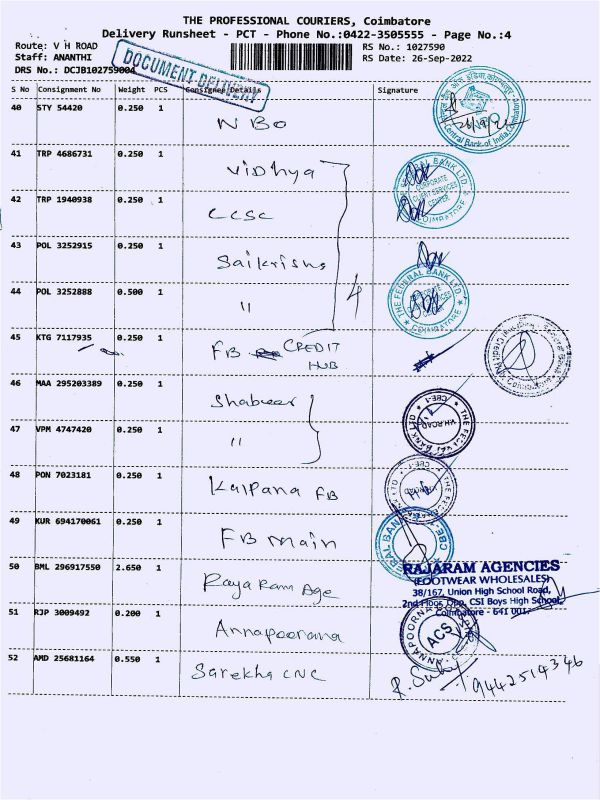 THE PROFESSIONAL COURIERS, Coimbatore
Delivery Runsheet - PCT - Phone No.:0422-3505555 - Page No.:4
Route: V H ROAD
RS No.: 1027590
Staff: ANANTHI
RS Date: 26-Sep-2022
DRS No.: DCJB102759004
DOCUMENT DELIVERY
S No Consignment No Weight PCS Consignee Details Signature
40 STY 54420 0.250 1 NBO
Central Bank of India, Coimbatore
41 TRP 4686731 0.250 1 Vidhya
CORPORATE
CLIENT SERVICES
CENTER
COIMBATORE
42 TRP 1940938 0.250 1 CCSC
43 POL 3252915 0.250 1 Saikrishna
4
44 POL 3252888 0.500 1 "
THE FEDERAL BANK LTD.
COIMBATORE
45 KTG 7117935 0.250 1 FB CREDIT
HUB
46 MAA 295203389 0.250 1 Shabeer
CBE-1
V.H.ROAD
47 VPM 4747420 0.250 1 "
48 PON 7023181 0.250 1 Kalpana FB
49 KUR 694170061 0.250 1 FB Main
50 BML 296917550 2.650 1 Rayaram Age
RAJARAM AGENCIES
(FOOTWEAR WHOLESALES)
38/167, Union High School Road,
2nd Floor, Opp. CSI Boys High School,
Coimbatore - 641 001
51 RJP 3009492 0.200 1 Annapoorana
ANNAPOORNA
ACS
52 AMD 25681164 0.550 1 Sarekha CNC
9442514346